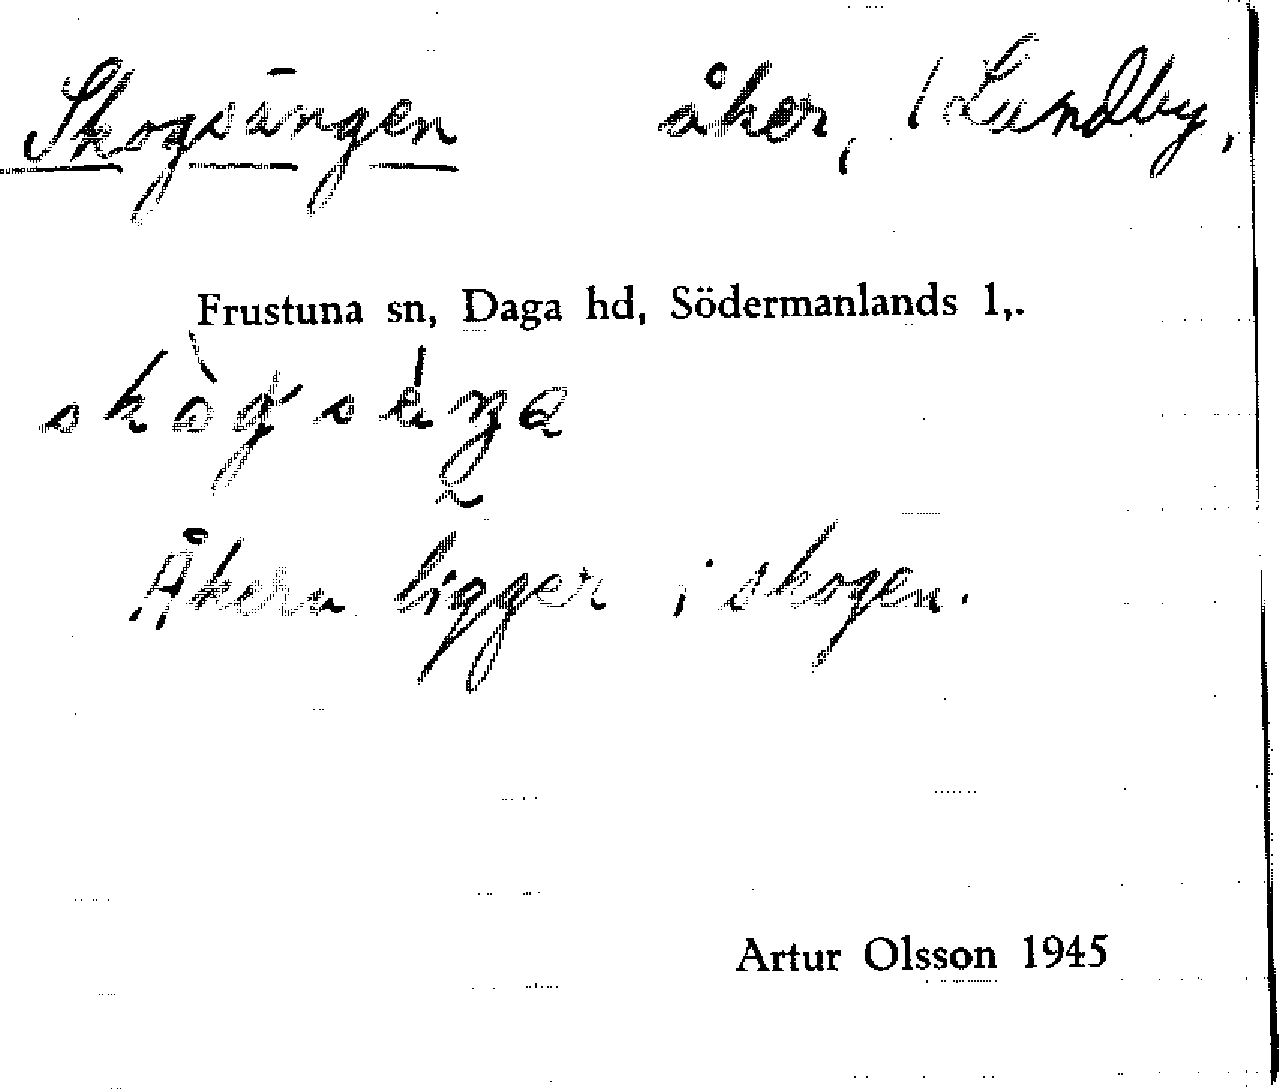 Skogsängen åker, 1 Lundby,
Frustuna sn, Daga hd, Södermanlands l,.
Åkern ligger i skogen.
Artur Olsson 1945